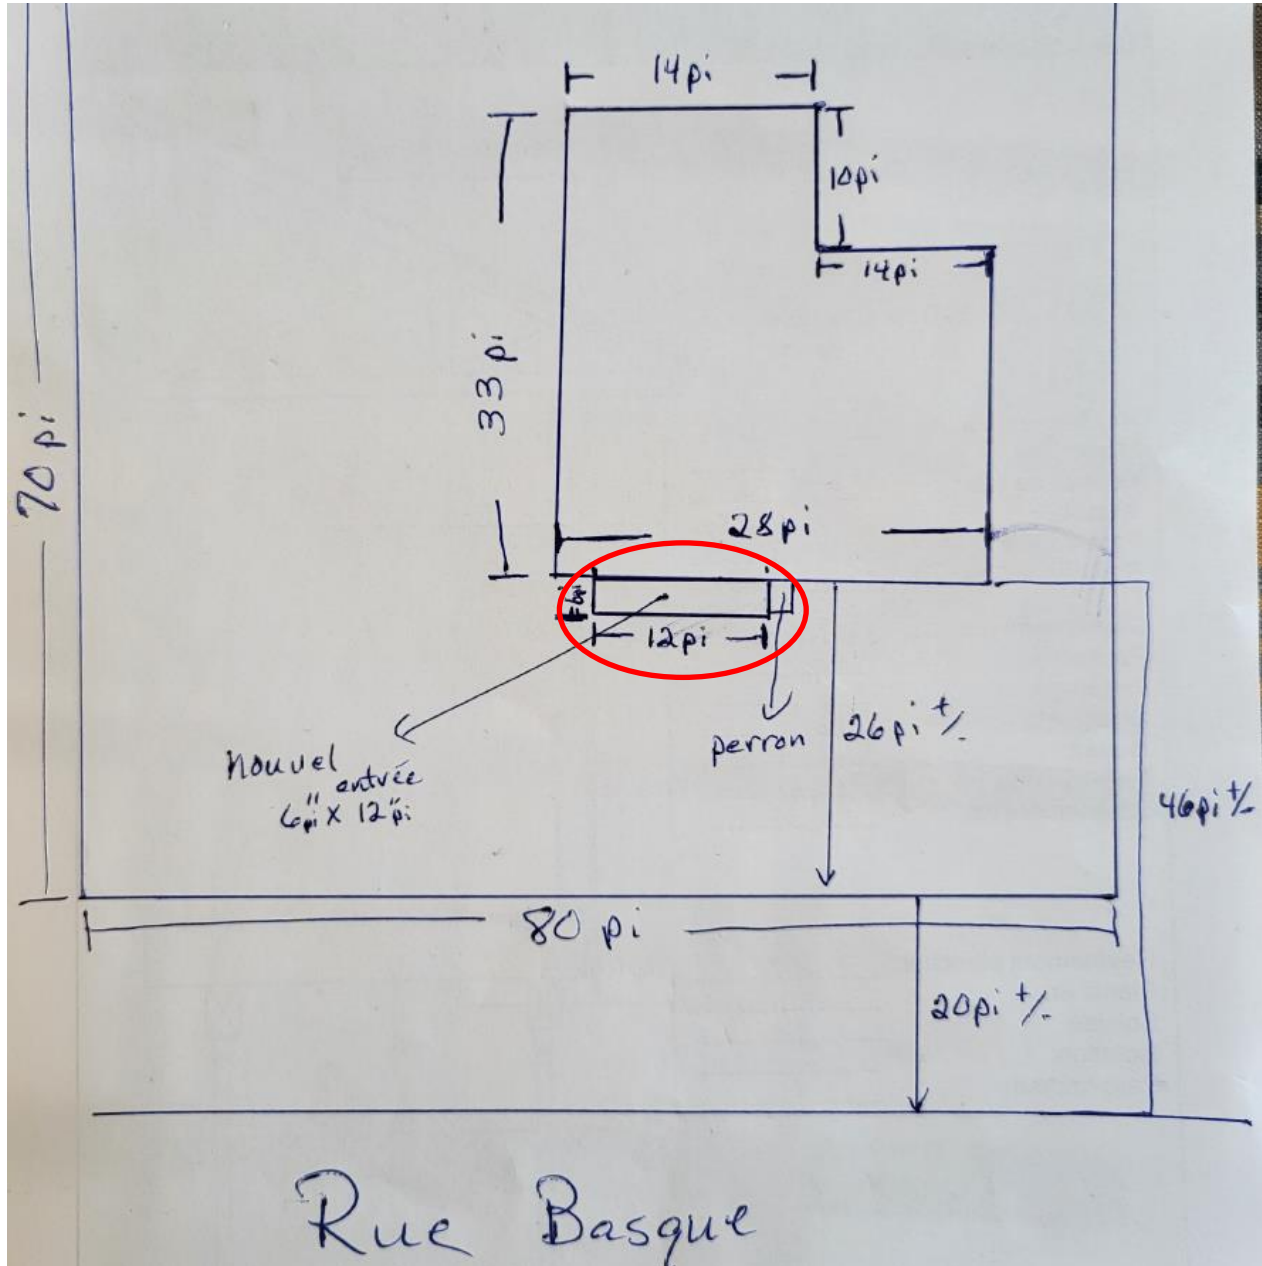 14pi
10pi
14pi
33 pi
70 pi
28 pi
6pi
12pi
nouvel
entrée
6"pi X 12"pi
perron
26 pi +/-
46pi +/-
80 pi
20pi +/-
Rue Basque